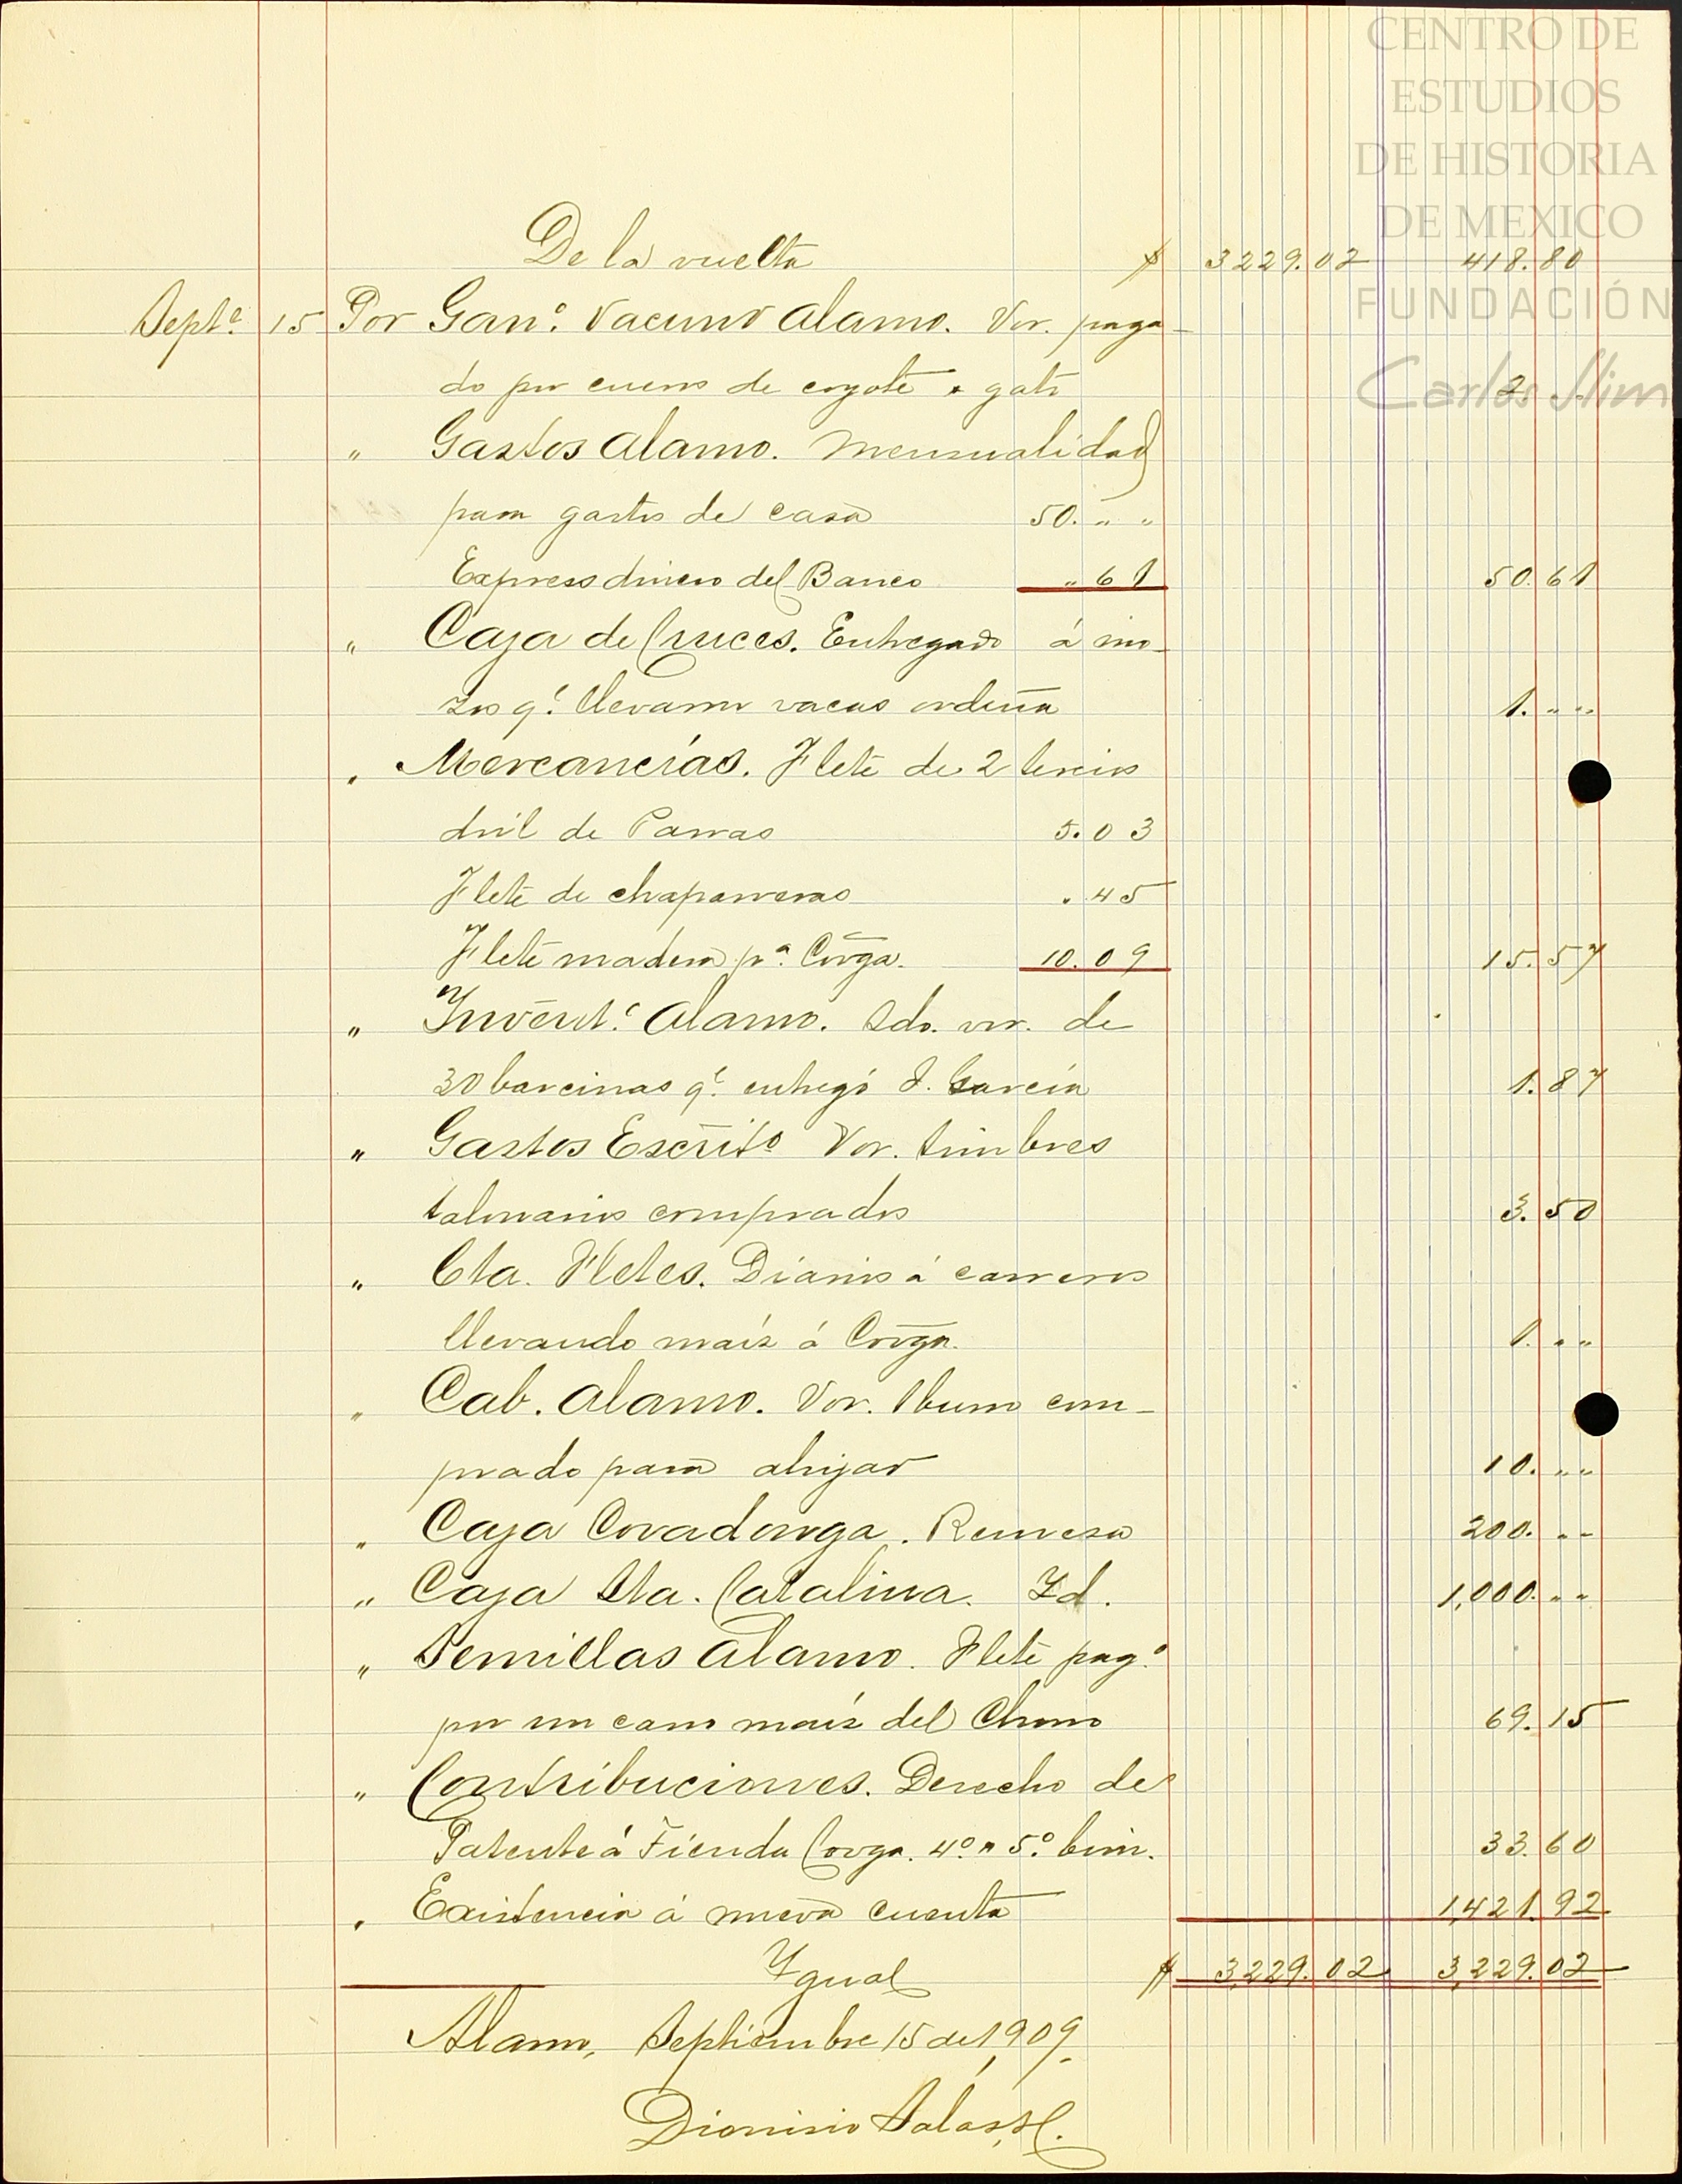 CENTRO DE
ESTUDIOS
DE HISTORIA
DE MEXICO
FUNDACIÓN
Carlos Slim
De la vuelta $ 3229.02 418.80
Septe. 15 Por Gano. Vacuno Alamo. Vor. paga-
do por cueros de coyote y gato 2. " "
" Gastos Alamo. Mensualidad
para gastos de casa 50. " "
Express dinero del Banco " 61 50.61
" Caja de Cruces. Entregado á mo-
zos qe. llevaron vacas ordeña 1. " "
" Mercancías. Flete de 2 tercios
dril de Parras 5.03
Flete de chaparreras . 45
Flete madera pa. Covga. 10.09 15.57
" Invent.o Alamo. Sdo. vor. de
30 barcinas qe. entregó J. García 1.87
" Gastos Escrito Vor. timbres
talonarios comprados 3.50
" Cta. Fletes. Diarios á carreros
llevando maíz á Covga. 1. " "
" Cab. Alamo. Vor. 1 burro com-
prado para ahijar 10. " "
" Caja Covadonga. Remesa 200. " "
" Caja Sta. Catalina. Id. 1,000. " "
" Semillas Alamo. Flete pago.
por un carro maíz del Chorro 69.15
" Contribuciones. Derecho de
Patente á Tienda Covga. 4o. y 5o. bim. 33.60
" Existencia á nueva cuenta 1,421.92
Igual $ 3,229.02 3,229.02
Alamo, Septiembre 15 de 1,909.
Dionisio Salas, H.